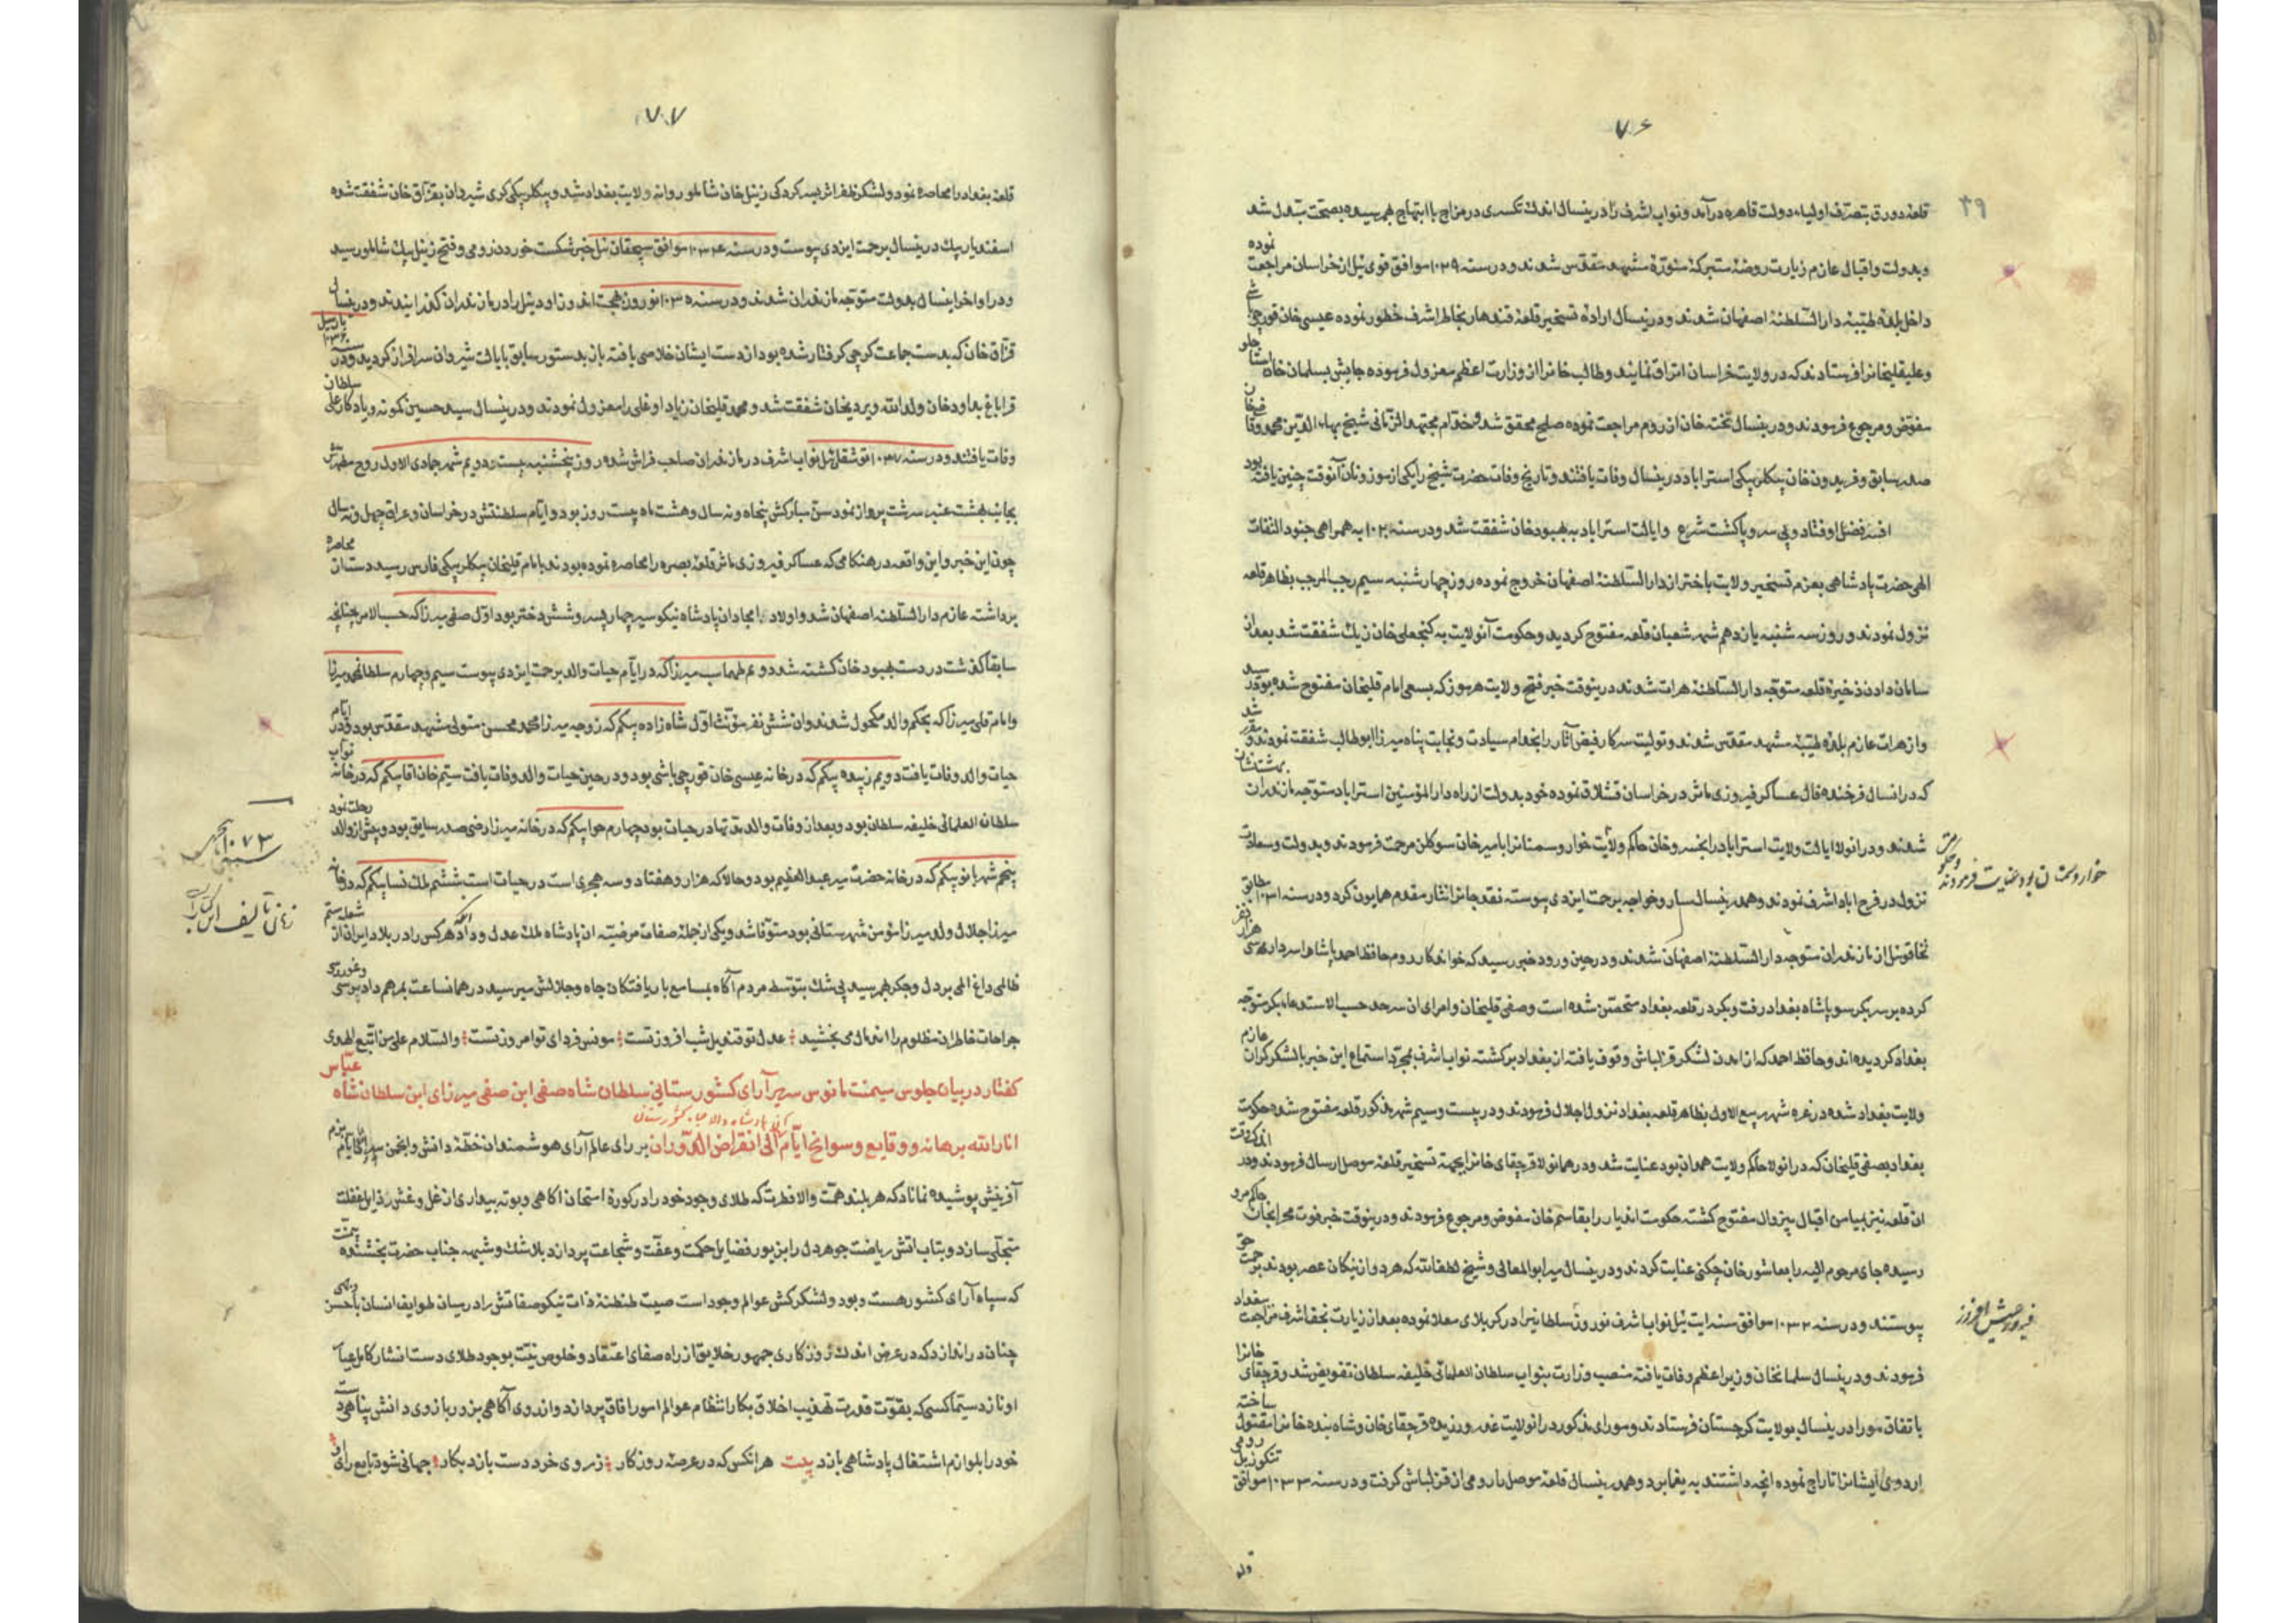 ۷۶
۳۹
قلعهٔ دورق بتصرف اولیاء دولت قاهره درآمد و نواب اشرف را درینسال اندک تکسری در مزاج با ابتهاج بهم رسیده بصحت مبدل شد
و بدولت و اقبال عازم زیارت روضهٔ متبرکهٔ منورهٔ مشهد مقدس شدند و در سنه ۱۰۲۹ موافق قوی ئیل از خراسان مراجعت نموده
داخل بلدهٔ طیبهٔ دارالسلطنهٔ اصفهان شدند و درینسال ارادهٔ تسخیر قلعهٔ قندهار بخاطر اشرف خطور نموده عیسی خان قورچی باشی
و علیقلیخانرا فرستادند که در ولایت خراسان اتراق نمایند و طالب خانرا از وزارت اعظم معزول فرموده جایش بسلمان خان استاجلو
مفوض و مرجوع فرمودند و درینسال تخته خان از روم مراجعت نموده صلح محقق شد و خدام مجتهد الزمانی شیخ بهاء الدین محمد و قاضیخان
صدر سابق و فریدون خان بیکلربیکی استراباد درینسال وفات یافتند و تاریخ وفات حضرت شیخ را یکی از موزونان آنوقت چنین یافته بود
افسر فضل اوفتاد و بی سر و پا گشت شرع و ایالت استراباد به بهبود خان شفقت شد و در سنه ۱۰۲۰ به همراهی جنود التفات
الهی حضرت پادشاهی بعزم تسخیر ولایت باختر از دارالسلطنهٔ اصفهان خروج نموده روز چهارشنبه سیم رجب المرجب بظاهر قلعه
نزول نمودند و روز سه شنبه یازدهم شهر شعبان قلعه مفتوح کردید و حکومت آنولایت به کنجعلی خان زیک شفقت شد بعد از
سامان دادن ذخیرهٔ قلعه متوجه دارالسلطنهٔ هرات شدند درینوقت خبر فتح ولایت هرموز که بسعی امام قلیخان مفتوح شده بود رسید
و از هرات عازم بلدهٔ طیبهٔ مشهد مقدس شدند و تولیت سرکار فیض آثار را بخدام سیادت و نجابت پناه میرزا ابوطالب شفقت نمودند و مقرر شد
که در انسال فرخنده فال عساکر فیروزی ماثر در خراسان قشلاق نموده خود بدولت از راه دارالمؤمنین استراباد متوجه مازندران بهشت نشان
شدند و درانولا ایالت ولایت استراباد را بخسرو خان حاکم ولایت خوار و سمنانرا بامیر خان سوکلن مرحمت فرمودند و بدولت و سعادت
خوار و سمنان بود عنایت فرمودند
نزول در فرح اباد اشرف نمودند و همدرینسال سارو خواجه برحمت ایزدی پیوسته نقد جانرا نثار مقدم همایون کرد و در سنه ۱۰۳۱ مطابق
تخاقوئیل از مازندران متوجه دارالسلطنهٔ اصفهان شدند و در حین ورود خبر رسید که خواندکار روم حافظ احمد پاشاه را سردار سی هزار نفر
کرده بر سر بکر سو پاشاه بغداد رفت و بکر در قلعه بغداد متحصن شده است و صفی قلیخان و امرای ان سرحد حسب الاستدعا بکر متوجه
بغداد کردیده اند و حافظ احمد که از امدن لشکر قزلباش وقوف یافته از بغداد برکشته نواب اشرف بمجرد استماع این خبر با لشکر گران عازم
ولایت بغداد شده در غره شهر ربیع الاول بظاهر قلعه بغداد نزول اجلال فرمودند و در بیست و سیم شهر مذکور قلعه مفتوح شد حکومت
بغداد بصفی قلیخان که درانولا حاکم ولایت همدان بود عنایت شد و درهمانولا قرچقای خانرا بجهة تسخیر قلعهٔ موصل ارسال فرمودند و در اندک وقت
ان قلعه نیز بمیامن اقبال بیزوال مفتوح کشته حکومت اندیار را بقاسم خان مفوض و مرجوع فرمودند و درینوقت خبر فوت محرابخان حاکم مرو
رسیده جای مرحوم الیه را بعاشور خان چکنی عنایت کردند و درینسال میر ابوالمعالی و شیخ لطف الله که هر دو از نیکان عصر بودند برحمت حق
پیوستند و در سنه ۱۰۳۲ موافق سنه ایت ئیل نواب اشرف نوروز سلطانیرا در کربلای معلا نموده بعد از زیارت نجف اشرف مراجعت ببغداد
فیروز بخش افروز
فرمودند و درینسال سلمانخان وزیر اعظم وفات یافته منصب وزارت بنواب سلطان العلمائی خلیفه سلطان تفویض شد و قرچقای خانرا
باتفاق موراو درینسال بولایت کرجستان فرستادند و مورای مذکور درانولایت غدر ورزیده قرچقای خان و شاه بنده خانرا مقتول ساخته
اردوی ایشانرا تاراج نموده انچه داشتند به یغما برد و همدرینسال قلعهٔ موصل را رومی از قزلباش کرفت و در سنه ۱۰۳۳ موافق تنکوزئیل رومی
۷۷
قلعهٔ بغداد را محاصره نمود و لشکر ظفر اثر بسرکردکی زینل خان شاملو روانه ولایت بغداد شد و بیکلربیکی کری شیروان بقزاق خان شفقت شده
اسفندیار بیک درینسال برحمت ایزدی پیوست و در سنه ۱۰۳۴ موافق سیچقان ئیل خبر شکست خوردن رومی و فتح زینل بیک شاملو رسید
و در اواخر اینسال بدولت متوجه مازندران شدند و در سنه ۱۰۳۵ نوروز بهجت اندوز اودئیل را در مازندران کذرانیدند و درینسال
قزاق خان که بدست جماعت کرجی کرفتار شده بود از دست ایشان خلاصی یافته باز بدستور سابق بایالت شیروان سرافراز کردید و در سنه ۱۰۳۶ بارس ئیل
قراباغ بداود خان ولد الله ویردیخان شفقت شد و محمد قلیخان زیاد اوغلی را معزول نمودند و درینسال سید حسین کمونه و یادکار علی سلطان
وفات یافتند و در سنه ۱۰۳۷ توشقان ئیل نواب اشرف در مازندران صاحب فراش شده روز پنجشنبه بیست و دویم شهر جمادی الاول روح مطهرش
بجانب بهشت عنبر سرشت پرواز نمود سن مبارکش پنجاه و نه سال و هشت ماه بیست روز بود و ایام سلطنتش در خراسان و عراق چهل و نه سال
چون این خبر و این واقعه در هنکامی که عساکر فیروزی ماثر قلعهٔ بصره را محاصره نموده بودند بامام قلیخان بیکلربیکی فارس رسید دست از محاصره
برداشته عازم دارالسلطنه اصفهان شد و اولاد امجاد ان پادشاه نیکو سیر چهار پسر و شش دختر بود اول صفی میرزا که حسب الامر چنانچه
سابقا کذشت در دست بهبود خان کشته شد دویم طهماسب میرزا که در ایام حیات والد برحمت ایزدی پیوست سیم و چهارم سلطانمحمد میرزا
و امام قلی میرزا که بحکم والد مکحول شدند و ان شش نفر مؤنث اول شاه زاده بیکم که زوجه میرزا محمد محسن متولی مشهد مقدس بود و در ایام
حیات والد وفات یافت دویم زبیده بیکم که در خانه عیسی خان قورچی باشی بود و در حین حیات والد وفات یافت سیم خان اقا بیکم که در خانه نواب
سلطان العلمائی خلیفه سلطان بود و بعد از وفات والد مدتها در حیات بود چهارم حوا بیکم که در خانه میرزا رضی صدر سابق بود و پیش از والد رحلت نمود
پنجم شهربانو بیکم که در خانه حضرت میر عبد العظیم بود و حالا که هزار و هفتاد و سه هجری است در حیات است ششم ملک نسا بیکم که در خانه
۱۰۷۳ هجری
زمان تألیف این کتاب
میرزا جلال ولد میرزا مؤمن شهرستانی بود متوفا شد و یکی از جمله صفات مرضیه ان پادشاه ملک عدل و داد انکه هرکس را در بلاد ایران از شعله ستم
ظالمی داغ المی بر دل و جکر بهم رسید بی شک بتوسط مردم آکاه بمسامع باریافتکان جاه و جلالش میرسید در همانساعت بمرهم دادپرسی و غوررسی
جراحات خاطر ان مظلوم را اندمال می بخشید عدل تو قندیل شب افروز تست مونس فردای تو امروز تست والسلام علی من اتبع الهدی
کفتار در بیان جلوس میمنت مانوس سریر آرای کشورستانی سلطان شاه صفی ابن صفی میرزای ابن سلطان شاه عباس
انار الله برهانه و وقایع و سوانح ایام الی انقراض الدوران بر رای عالم آرای هوشمندان خطهٔ دانش و انجمن
آفرینش پوشیده نماناد که هر بلند همت والا فطرت که طلای وجود خود را در کورهٔ امتحان اکاهی و بوته بیداری از غل و غش رذایل غفلت
متجلی سازد و بتاب اتش ریاضت جوهر دل را بزیور فضایل حکمت و عفت و شجاعت پردازد بلا شک و شبهه جناب حضرت بخشنده بیمنت
که سپاه آرای کشور هست و بود و لشکرکش عوالم وجود است صیت طنطنهٔ ذات نیکو صفاتش را در میان طوایف انسان باحسن وجهی
چنان در اندازد که در عرض اندک روزکاری جمهور خلایق از راه صفای اعتقاد و خلوص نیت بوجود طلای دست افشار کامل عیار
او نازد سیما کسی که بقوت قدرت تهذیب اخلاق بکار انتظام عوالم امور افاق پردازد و از روی آکاهی بزور بازوی دانش پناهی دست
خود را بلوازم اشتغال پادشاهی یازد بیت هرانکس که در عرصهٔ روزکار ز روی خرد دست یازد بکار جهانی شود تابع رای او